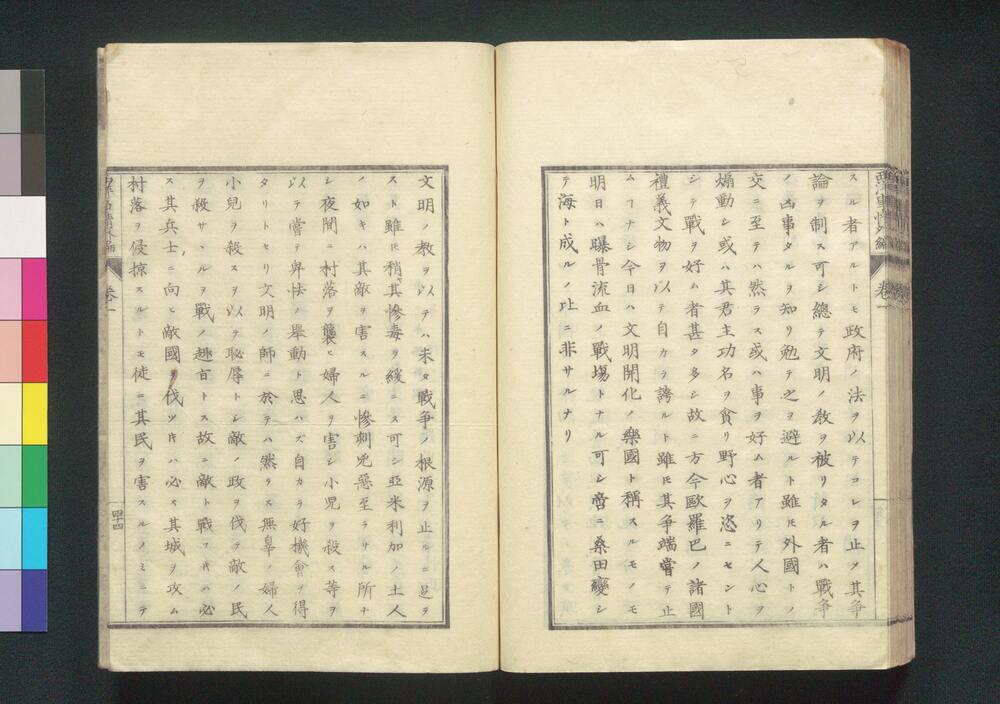 スル者アルトモ政府ノ法ヲ以テコレヲ止メ其争
論ヲ制ス可シ總テ文明ノ教ヲ被リタル者ハ戰爭
ノ凶事タルヲ知リ勉テ之ヲ避ルト雖𪜈外國トノ
交ニ至テハ然ラス或ハ事ヲ好ム者アリテ人心ヲ
煽動シ或ハ其君主功名ヲ貪リ野心ヲ恣ニセント
シテ戰ヲ好ム者甚タ多シ故ニ方今歐羅巴ノ諸國
禮義文物ヲ以テ自カラ誇ルト雖𪜈其争端嘗テ止
ムヿナシ今日ハ文明開化ノ樂國ト稱スルモノモ
明日ハ曝骨流血ノ戰塲トナル可シ啻ニ桑田變シ
テ海ト成ルノ比ニ非サルナリ
卷一
文明ノ教ヲ以テハ未タ戰爭ノ根源ヲ止ルニ足ラ
スト雖𪜈稍〻其惨毒ヲ緩ニス可シ亞米利加ノ土人
ノ如キハ其敵ヲ害スルニ惨刺兇惡至ラサル所ナ
シ夜間ニ村落ヲ襲ヒ婦人ヲ害シ小児ヲ殺ス等ヲ
以テ嘗テ卑怯ノ舉動ト思ハズ自カラ好機會ヲ得
タリトセリ文明ノ師ニ於テハ然ラス無辜ノ婦人
小兒ヲ殺スヲ以テ恥辱トシ敵ノ政ヲ伐テ敵ノ民
ヲ殺サヽルヲ戰ノ趣旨トス故ニ敵ト戰フ𪜈ハ必
ス其兵士ニ向ヒ敵國ヲ伐ツ𪜈ハ必ス其城ヲ攻ム
村落ヲ侵掠スルトモ徒ニ其民ヲ害スルノミニテ
卷一
四十四